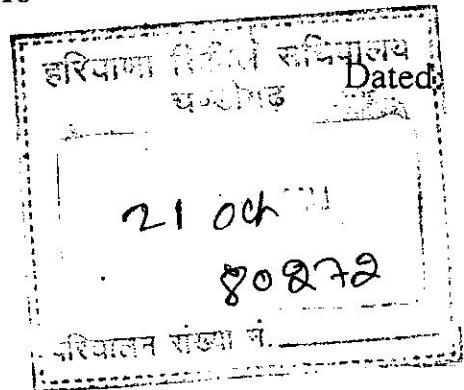 हरियाणा सिविल सचिवालय
Dated:
चण्डीगढ़
21 Oct
80272
परिचालन संख्या नं.